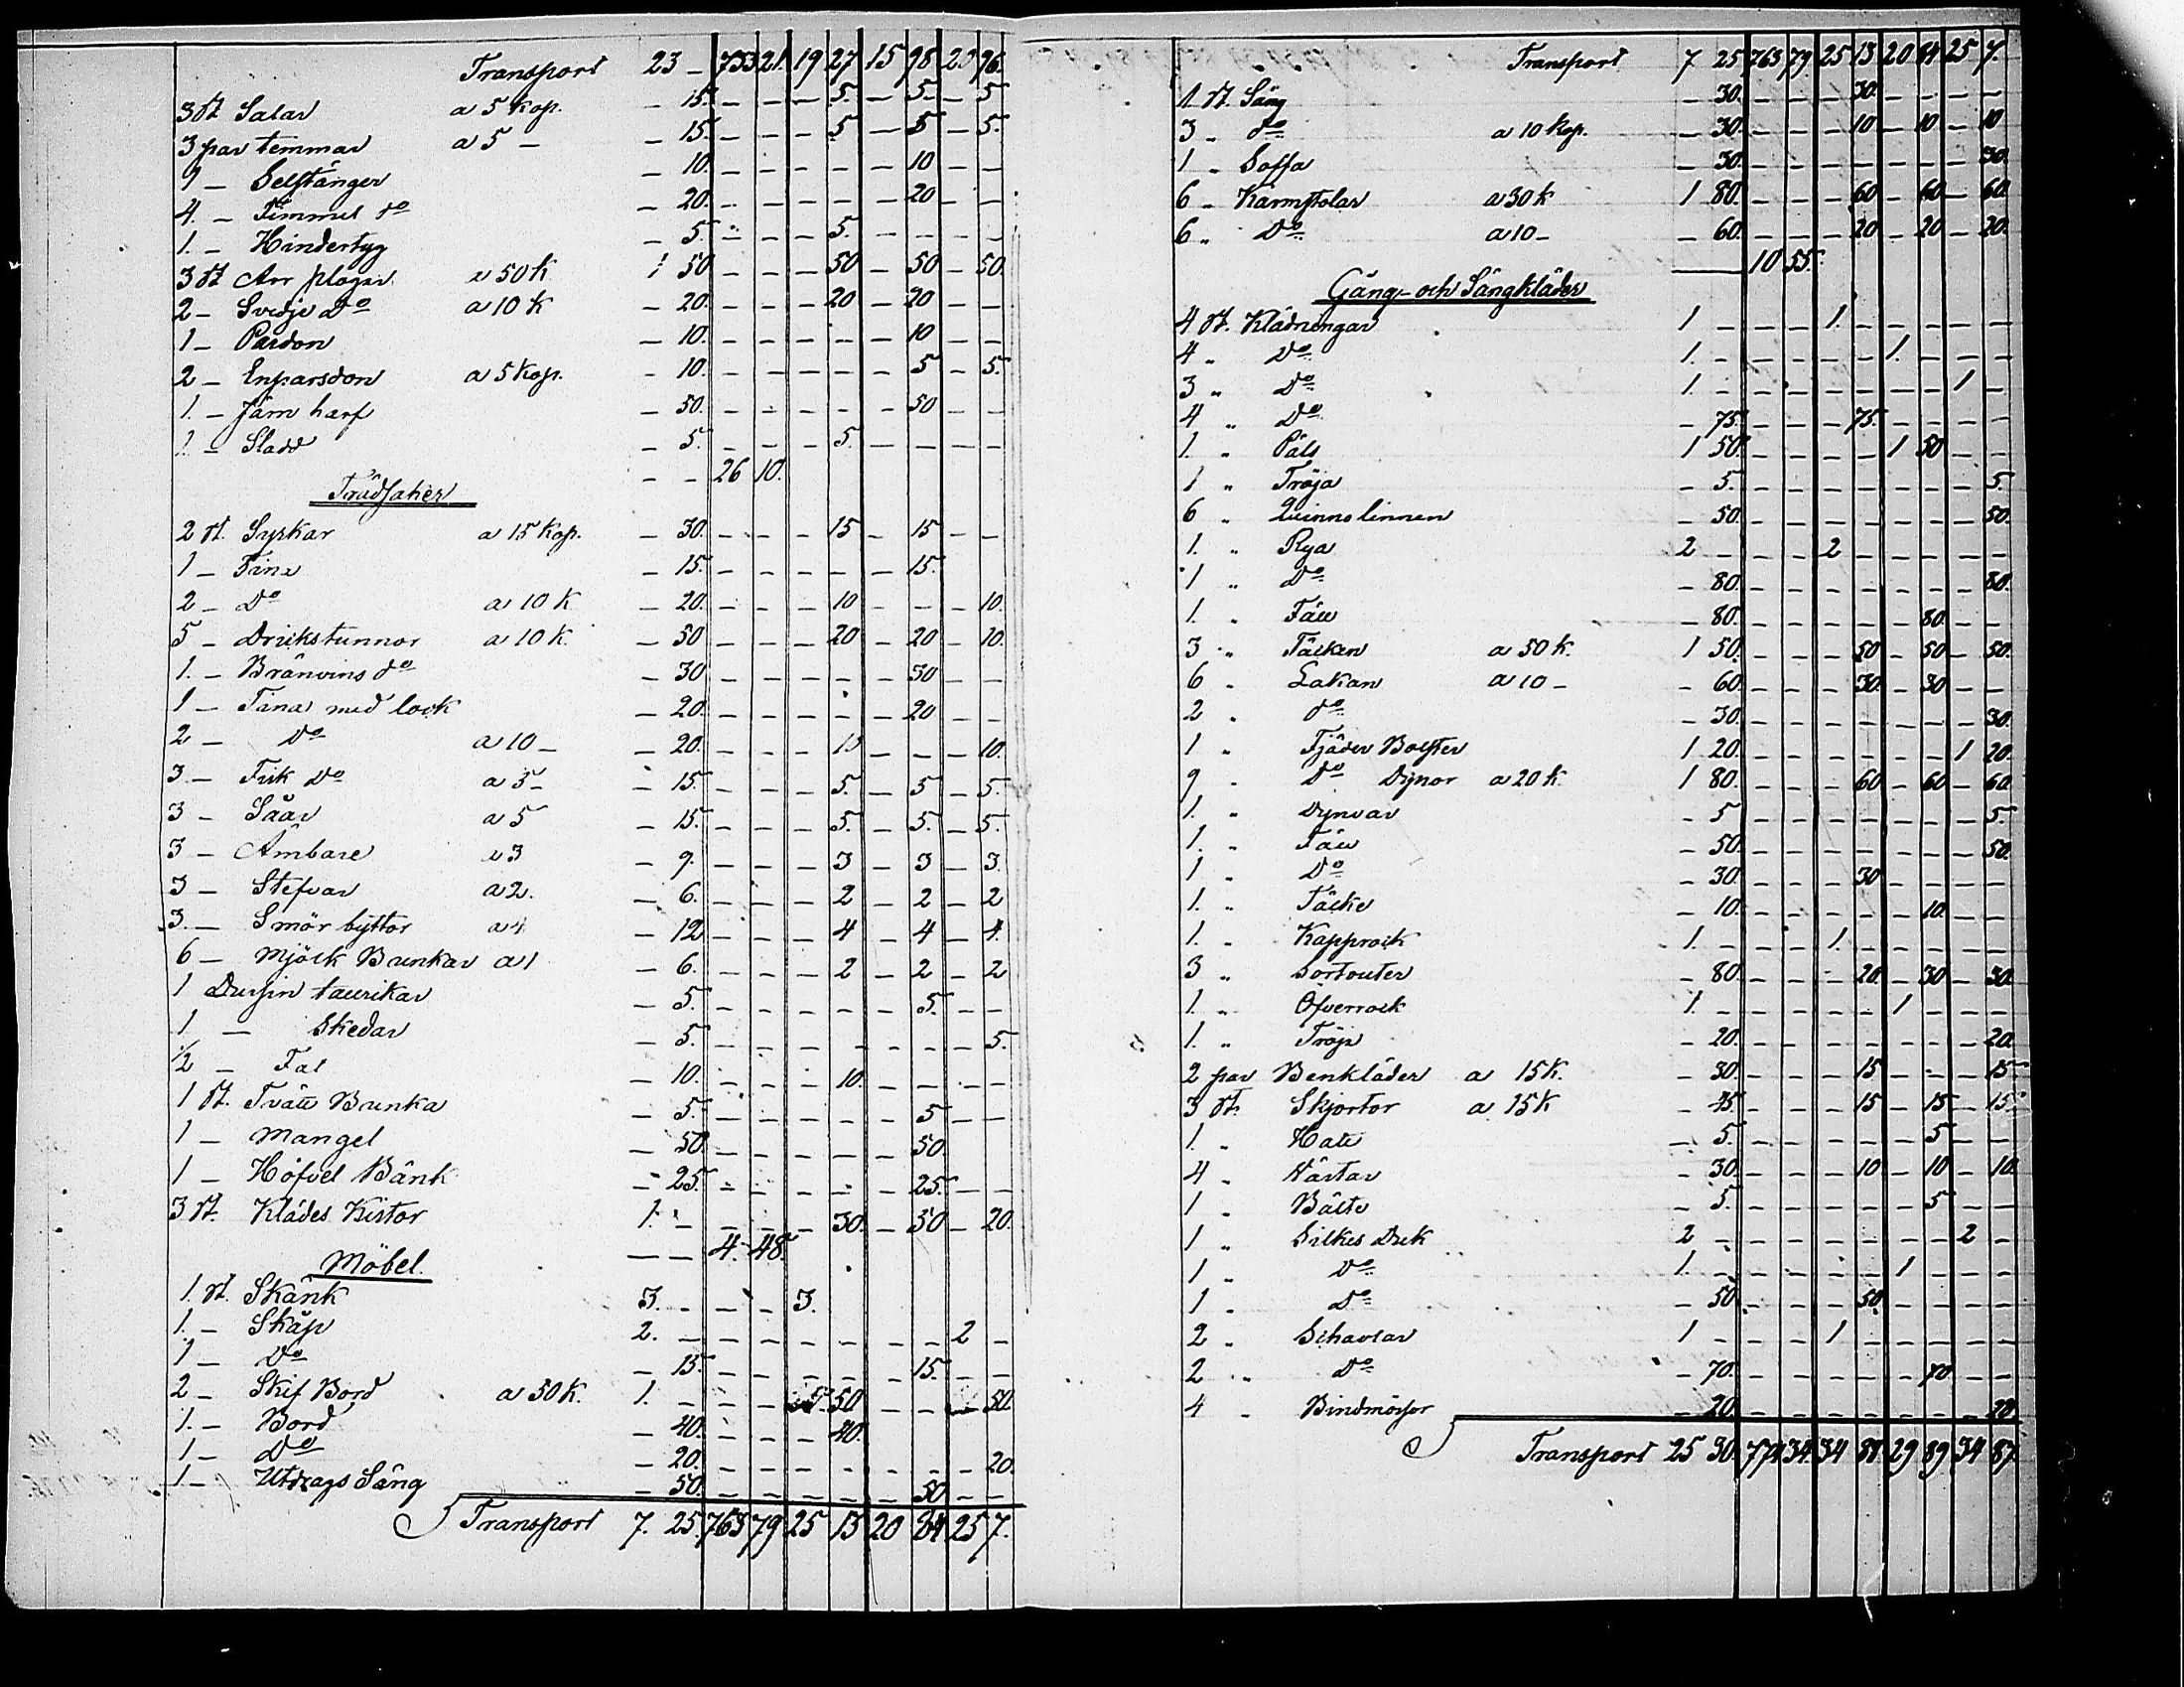 Transport 23 – 733 21. 19 27 15 98 20 96.
3 st Salar a 5 Kop. – 15. – – – 5. – 5 – 5
3 par temmar a 5 – – 15. – – – 5 – 5 – 5.
1 – Selstänger – 10. – – – – – 10 – –
4. – Timmel do – 20. – – – – – 20 – –
1. – Hindertyg – 5. – – – 5. – – – –
3 st Arr plogar a 50 K 1 50 – – – 50 – 50 – 50.
2 – Svedje Do a 10 K – 20. – – – 20 – 20 – –
1 – Pardon – 10. – – – – – 10 – –
2 – Enparsdon a 5 Kop. – 10. – – – – – 5 – 5.
1. – Järn harf – 50. – – – – – 50 – –
1. – Sladd – 5. – – – 5. – – – –
– – 26 10.
Trädsaker
2 st. Syrkar a 15 Kop. – 30. – – – 15 – 15 – –
1 – Tina – 15. – – – – – 15. – –
2 – Do a 10 K – 20. – – – 10 – – – 10.
5 – Drickstunnor a 10 K. – 50 – – – 20 – 20 – 10.
1. – Bränvins do – 30 – – – – – 30 – –
1 – Tina med lock – 20. – – – – – 20 – –
2 – Do a 10 – – 20. – – – 10 – – – 10.
3. – Fisk Do a 5 – – 15. – – – 5. – 5 – 5.
3 – Såar a 5 – 15. – – – 5. – 5. – 5.
3 – Ämbare a 3 – 9. – – – 3 – 3 – 3.
3 – Stefvar a 2. – 6. – – – 2 – 2 – 2
3. – Smör byttor a 4 – 12 – – – 4 – 4 – 4.
6 – Mjölk Bunkar a 1 – 6. – – – 2 – 2 – 2
1 Dussin taurikar – 5. – – – – – 5. – –
1 – Skedar – 5. – – – – – – – 5.
1/2 – Fat – 10. – – – 10. – – – –
1 st. Tvätt Bunka – 5. – – – – – 5 – –
1 – Mangel – 50. – – – – – 50.
1 – Höfvel Bänk – 25. – – – – – 25. – –
3 st. Klädes Kistor 1. – – – – 30. – 50 – 20.
– – 4. 48.
Möbel.
1. st. Skänk 3. – – – 3.
1. – Skåp 2. – – – – – – – 2 –
1 – Do – 15. – – – – – 15. – –
2 – Skif Bord a 50 K. 1. – – – 50 – – – 50.
1. – Bord – 40. – – – 40.
1 – Do – 20. – – – – – – – 20.
1 – Utdrags Säng – 50. – – – – – 50 – –
Transport 7. 25. 763 79 25 13 20 84 25 7.
Transport 7 25 763 79. 25 13 20 84 25 7.
1 st. Säng – 30. – – – 30. – – – –
3 „ do a 10 Kop. – 30. – – – 10 – 10 – 10
1 „ Soffa – 30. – – – – – – – 30.
6 „ Karmstolar a 30 K 1 80. – – – 60 – 60 – 60.
6 „ Do a 10 – – 60. – – – 20 – 20 – 20.
10 55.
Gång- och Sängkläder
4 st. Klädningar 1 – – – 1. – – – – –
4 „ Do 1. – – – – – 1. – – –
3 „ Do 1 – – – – – – – 1 –
4 „ Do – 75. – – – 75. – – – –
1. „ Päls 1 50. – – – – 1 50 – –
1 „ Tröja – 5. – – – – – – – 5.
6 „ Quinnolinnen – 50. – – – – – – – 50.
1. „ Rya 2 – – – 2 – – – – –
1 „ Do – 80. – – – – – – – 80.
1. „ Fäll – 80. – – – – – 80. – –
3 „ Täcken a 50 K. 1 50. – – – 50 – 50 – 50.
6 „ Lakan a 10 – – 60. – – – 30. – 30 – –
2 „ do – 30. – – – – – – – 30.
1 „ Fjäder Bolster 1 20. – – – – – – 1 20.
9 „ Do Dynor a 20 K. 1 80. – – – 60 – 60 – 60
1. „ Dynvar – 5 – – – – – – – 5.
1. „ Fäll – 50. – – – – – – – 50.
1 „ Do – 30. – – – 30 – – – –
1. „ Täcke – 10. – – – – – 10. – –
1. „ Kapprock 1. – – – 1. – – – – –
3 „ Sortouter – 80. – – – 20. – 30 – 30.
1. „ Öfverrock 1. – – – – – 1 – – –
1. „ Tröja – 20. – – – – – – – 20.
2 par Benkläder a 15 K. – 30. – – – 15 – – – 15
3 st. Skjortor a 15 K – 45. – – – 15 – 15 – 15.
1. „ Hatt – 5. – – – – – 5 – –
4 „ Västar – 30. – – – 10 – 10 – 10.
1 „ Bälte – 5. – – – – – 5 – –
1 „ Silkes Duk 2 – – – – – – – 2 –
1 „ Do 1. – – – – – 1 – – –
1 „ Do – 50 – – – 50. – – – –
2 „ Schavlar 1 – – – 1 – – – – –
2 „ Do – 70. – – – – – 70 – –
4 „ Bindmössor – 20. – – – – – – – 20
Transport 25 30. 774 34. 34 88. 29 89 34 87.